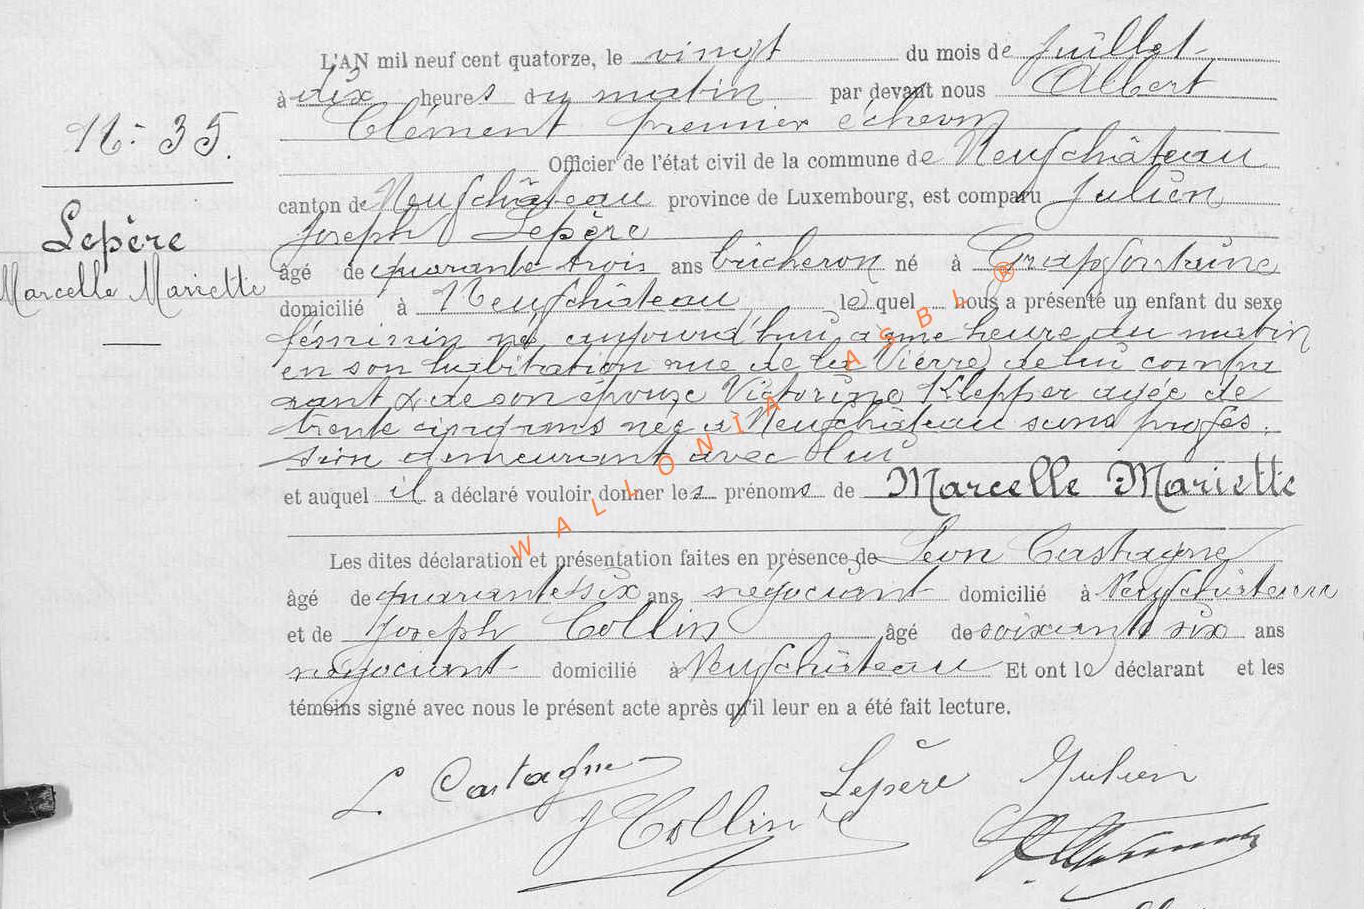 L'AN mil neuf cent quatorze, le vingt du mois de juillet
à dix heures du matin par devant nous Albert
Clément premier échevin
N° 35.
Officier de l'état civil de la commune de Neufchâteau
canton de Neufchâteau province de Luxembourg, est comparu Julien
Lepère
Joseph Lepère
Marcelle Mariette
âgé de quarante trois ans bûcheron né à Grapfontaine
domicilié à Neufchâteau lequel nous a présenté un enfant du sexe
féminin né aujourd'hui à une heure du matin
en son habitation rue de la Vierre de lui compa
rant & de son épouse Victorine Klepper agée de
trente cinq ans née à Neufchâteau sans profes
sion demeurant avec lui
et auquel il a déclaré vouloir donner les prénoms de Marcelle Mariette
WALLONIA ASBL ®
Les dites déclaration et présentation faites en présence de Léon Castagne
âgé de quarante six ans négociant domicilié à Neufchâteau
et de Joseph Collin âgé de soixante six ans
négociant domicilié à Neufchâteau Et ont le déclarant et les
témoins signé avec nous le présent acte après qu'il leur en a été fait lecture.
L Castagne
Lepère Julien
J Collin